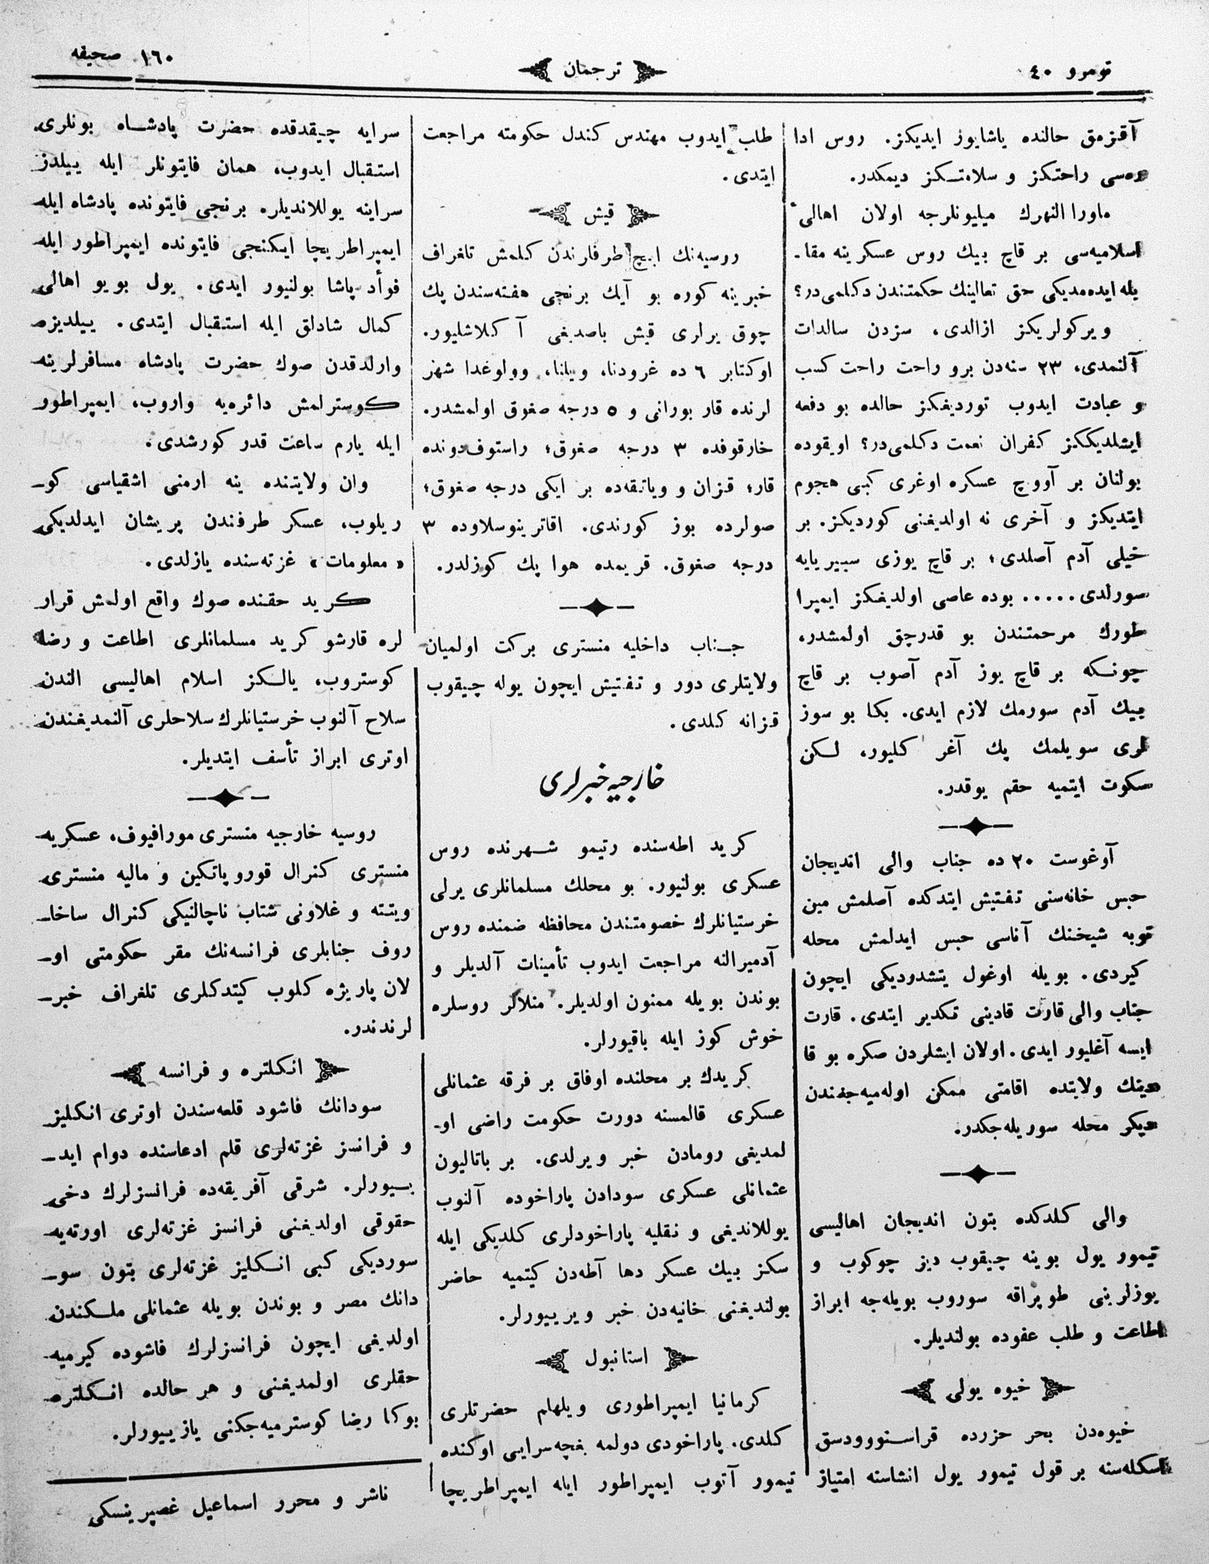 نومرو ٤٠
ترجمان
١٦٠ صحیفه
آقزمق حالنده یاشایوز ایدیکز. روس ادا
ره‌سی راحتکز و سلامتکز دیمکدر.
ماورا النهرك میلیونلرجه اولان اهالی
اسلامیه‌سی بر قاچ بیك روس عسکرینه مقا۔
بله ایده‌مدیکی حق تعالینك حکمتندن دکلمی‌در؟
ویرکولریکز ازالدی، سزدن سالدات
آلنمدی، ٢٣ سنه‌دن برو راحت راحت کسب
و عبادت ایدوب توردیغکز حالده بو دفعه
ایشلدیککز کفران نعمت دکلمی‌در؟ اویقوده
بولنان بر آووچ عسکره اوغری کبی هجوم
ایتدیکز و آخری نه اولدیغنی کوردیکز. بر
خیلی آدم آصلدی؛ بر قاچ یوزی سیبریایه
سورلدی..... بوده عاصی اولدیغکز ایمپرا
طورك مرحمتندن بو قدرچق اولمشدر،
چونکه بر قاچ یوز آدم آصوب بر قاچ
بیك آدم سورمك لازم ایدی. بکا بو سوز
لری سویلمك پك آغر کلیور، لکن
سکوت ایتمیه حقم یوقدر.
آوغوست ٢٠ ده جناب والی اندیجان
حبس خانه‌سنی تفتیش ایتدکده آصلمش مین
توبه شیخنك آناسی حبس ایدلمش محله
کیردی. بویله اوغول یتشدودیکی ایچون
جناب والی قارت قادینی تکدیر ایتدی. قارت
ایسه آغلیور ایدی. اولان ایشلردن صکره بو قا
دینك ولایتده اقامتی ممکن اوله‌میه‌جغندن
دیکر محله سوریله‌جکدر.
والی کلدکده بتون اندیجان اهالیسی
تیمور یول بوینه چیقوب دیز چوکوب و
یوزلرینی طوپراقه سوروب بویله‌جه ابراز
اطاعت و طلب عفوده بولندیلر.
خیوه یولی
خیوه‌دن بحر حزرده قراسنوودسق
اسکله‌سنه بر قول تیمور یول انشاسنه امتیاز
طلب ایدوب مهندس کندل حکومته مراجعت
ایتدی.
قیش
روسیه‌نك ایچ طرفلرندن کلمش تلغراف
خبرینه کوره بو آیك برنجی هفته‌سندن پك
چوق یرلری قیش باصدیغی آکلاشلیور.
اوکتابر ٦ ده غرودنا، ویلنا، وولوغدا شهر
لرنده قار بورانی و ٥ درجه صغوق اولمشدر.
خارقوفده ٣ درجه صغوق؛ راستوف‌دونده
قار؛ قزان و ویاتقه‌ده بر ایکی درجه صغوق؛
صولرده بوز کورندی. اقاترینوسلاوده ٣
درجه صغوق. قریمده هوا پك کوزلدر.
جناب داخلیه منستری برکت اولمیان
ولایتلری دور و تفتیش ایچون یوله چیقوب
قزانه کلدی.
خارجیه خبرلری
کرید اطه‌سنده رتیمو شهرنده روس
عسکری بولنیور. بو محلك مسلمانلری یرلی
خرستیانلرك خصومتندن محافظه ضمنده روس
آدمیرالنه مراجعت ایدوب تأمینات آلدیلر و
بوندن بویله ممنون اولدیلر. منلالر روسلره
خوش کوز ایله باقیورلر.
کریدك بر محلنده اوفاق بر فرقه عثمانلی
عسکری قالمسنه دورت حکومت راضی او۔
لمدیغی رومادن خبر ویرلدی. بر باتالیون
عثمانلی عسکری سودادن پاراخوده آلنوب
یوللاندیغی و نقلیه پاراخودلری کلدیکی ایله
سکز بیك عسکر دها آطه‌دن کیتمیه حاضر
بولندیغنی خانیه‌دن خبر ویرییورلر.
استانبول
کرمانیا ایمپراطوری ویلهام حضرتلری
کلدی. پاراخودی دولمه بغچه‌سرایی اوکنده
تیمور آتوب ایمپراطور ایله ایمپراطریچا
سرایه چیقدقده حضرت پادشاه بونلری
استقبال ایدوب، همان فایتونلر ایله ییلدز
سراینه یوللاندیلر. برنجی فایتونده پادشاه ایله
ایمپراطریچا ایکنجی فایتونده ایمپراطور ایله
فوأد پاشا بولنیور ایدی. یول بویو اهالی
کمال شادلق ایله استقبال ایتدی. ییلدیزه
وارلدقدن صوك حضرت پادشاه مسافرلرینه
کوسترلمش دائره‌یه واروب، ایمپراطور
ایله یارم ساعت قدر کورشدی.
وان ولایتنده ینه ارمنی اشقیاسی کو۔
ریلوب، عسکر طرفندن پریشان ایدلدیکی
«معلومات» غزته‌سنده یازلدی.
کرید حقنده صوك واقع اولمش قرار
لره قارشو کرید مسلمانلری اطاعت و رضا
کوستروب، یالکز اسلام اهالیسی الندن
سلاح آلنوب خرستیانلرك سلاحلری آلنمدیغندن
اوتری ابراز تأسف ایتدیلر.
روسیه خارجیه منستری مورافیوف، عسکریه
منستری کنرال قوروپاتکین و مالیه منستری
ویتته و غلاونی شتاب ناچالنیکی کنرال ساخا۔
روف جنابلری فرانسه‌نك مقر حکومتی او۔
لان پاریژه کلوب کیتدکلری تلغراف خبر۔
لرندندر.
انکلتره و فرانسه
سودانك فاشود قلعه‌سندن اوتری انکلیز
و فرانسز غزته‌لری قلم ادعاسنده دوام اید۔
ییورلر. شرقی آفریقه‌ده فرانسزلرك دخی
حقوقی اولدیغنی فرانسز غزته‌لری اورته‌یه
سوردیکی کبی انکلیز غزته‌لری بتون سو۔
دانك مصر و بوندن بویله عثمانلی ملکندن
اولدیغی ایچون فرانسزلرك فاشوده کیرمیه
حقلری اولمدیغنی و هر حالده انکلتره
بوکا رضا کوسترمیه‌جکنی یازییورلر.
ناشر و محرر اسماعیل غصپرینسکی